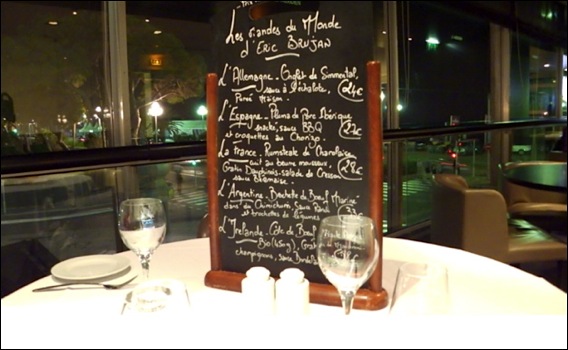 Les Viandes du Monde
d'Eric BRUJAN
L'Allemagne - Onglet de Simmental,
sauce à l'échalote, 24€
Purée maison.
L'Espagne - Pluma de Porc Ibérique
snackée, sauce BBQ 27€
et croquettes au Chorizo
La France - Rumsteack de Charolaise
cuit au beurre mousseux, 28€
Gratin Dauphinois - salade de Cresson
sauce Béarnaise.
L'Argentine - Brochette de Boeuf Mariné
dans du Chimichurri, Sauce
et brochettes de légumes
L'Irelande - Côte de Boeuf
Bio (450g),
champignons, sauce